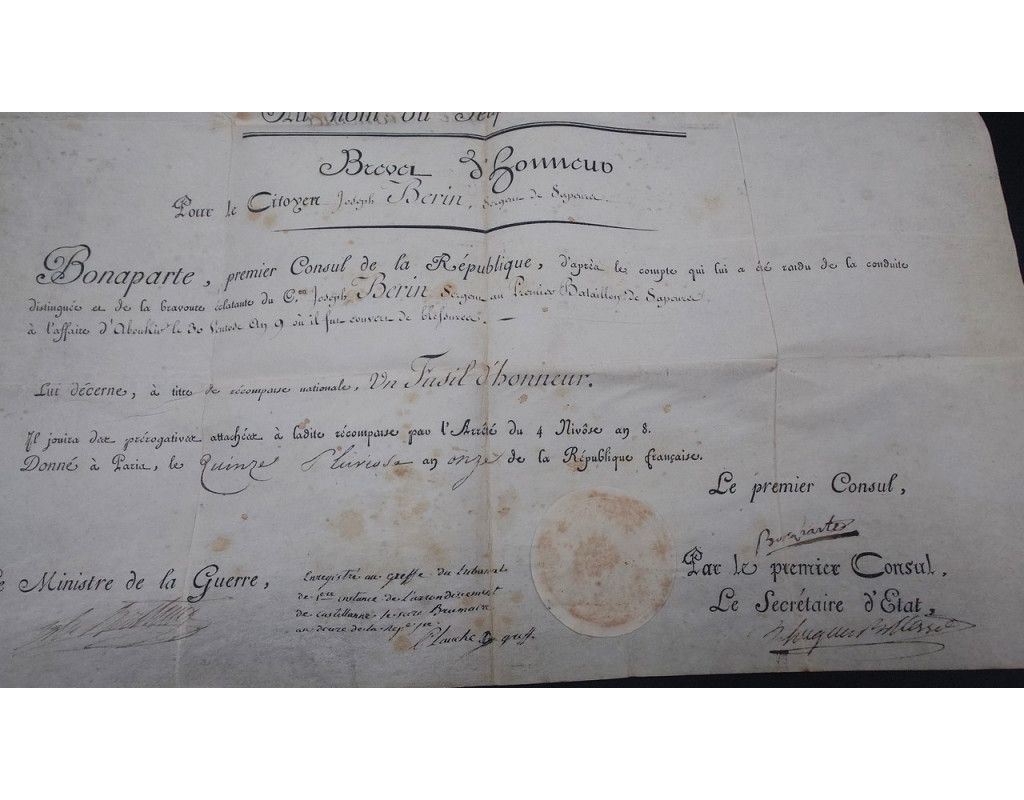 Au nom du
Brevet d'Honneur
Pour le Citoyen Joseph Berin, Sergent de Sapeurs.
Bonaparte, premier Consul de la République, d'après le compte qui lui a été rendu de la conduite
distinguée et de la bravoure éclatante du C.en Joseph Berin Sergent au Premier Bataillon de Sapeurs.
à l'affaire d'Aboukir le 30 Ventose An 9 où il fut couvert de blessures. —
Lui décerne, à titre de récompense nationale, Un Fusil d'honneur.
Il jouira des prérogatives attachées à ladite récompense par l'Arrêté du 4 Nivôse an 8.
Donné à Paris, le Quinze Pluviose an onze de la République française.
Le premier Consul,
Bonaparte
Ministre de la Guerre,
Par le premier Consul,
Le Secrétaire d'Etat,
Enregistré au greffe du tribunal
de 1ere instance de l'arrondissement
de Castellanne le Brumaire
an douze de la Rep.e
greff.